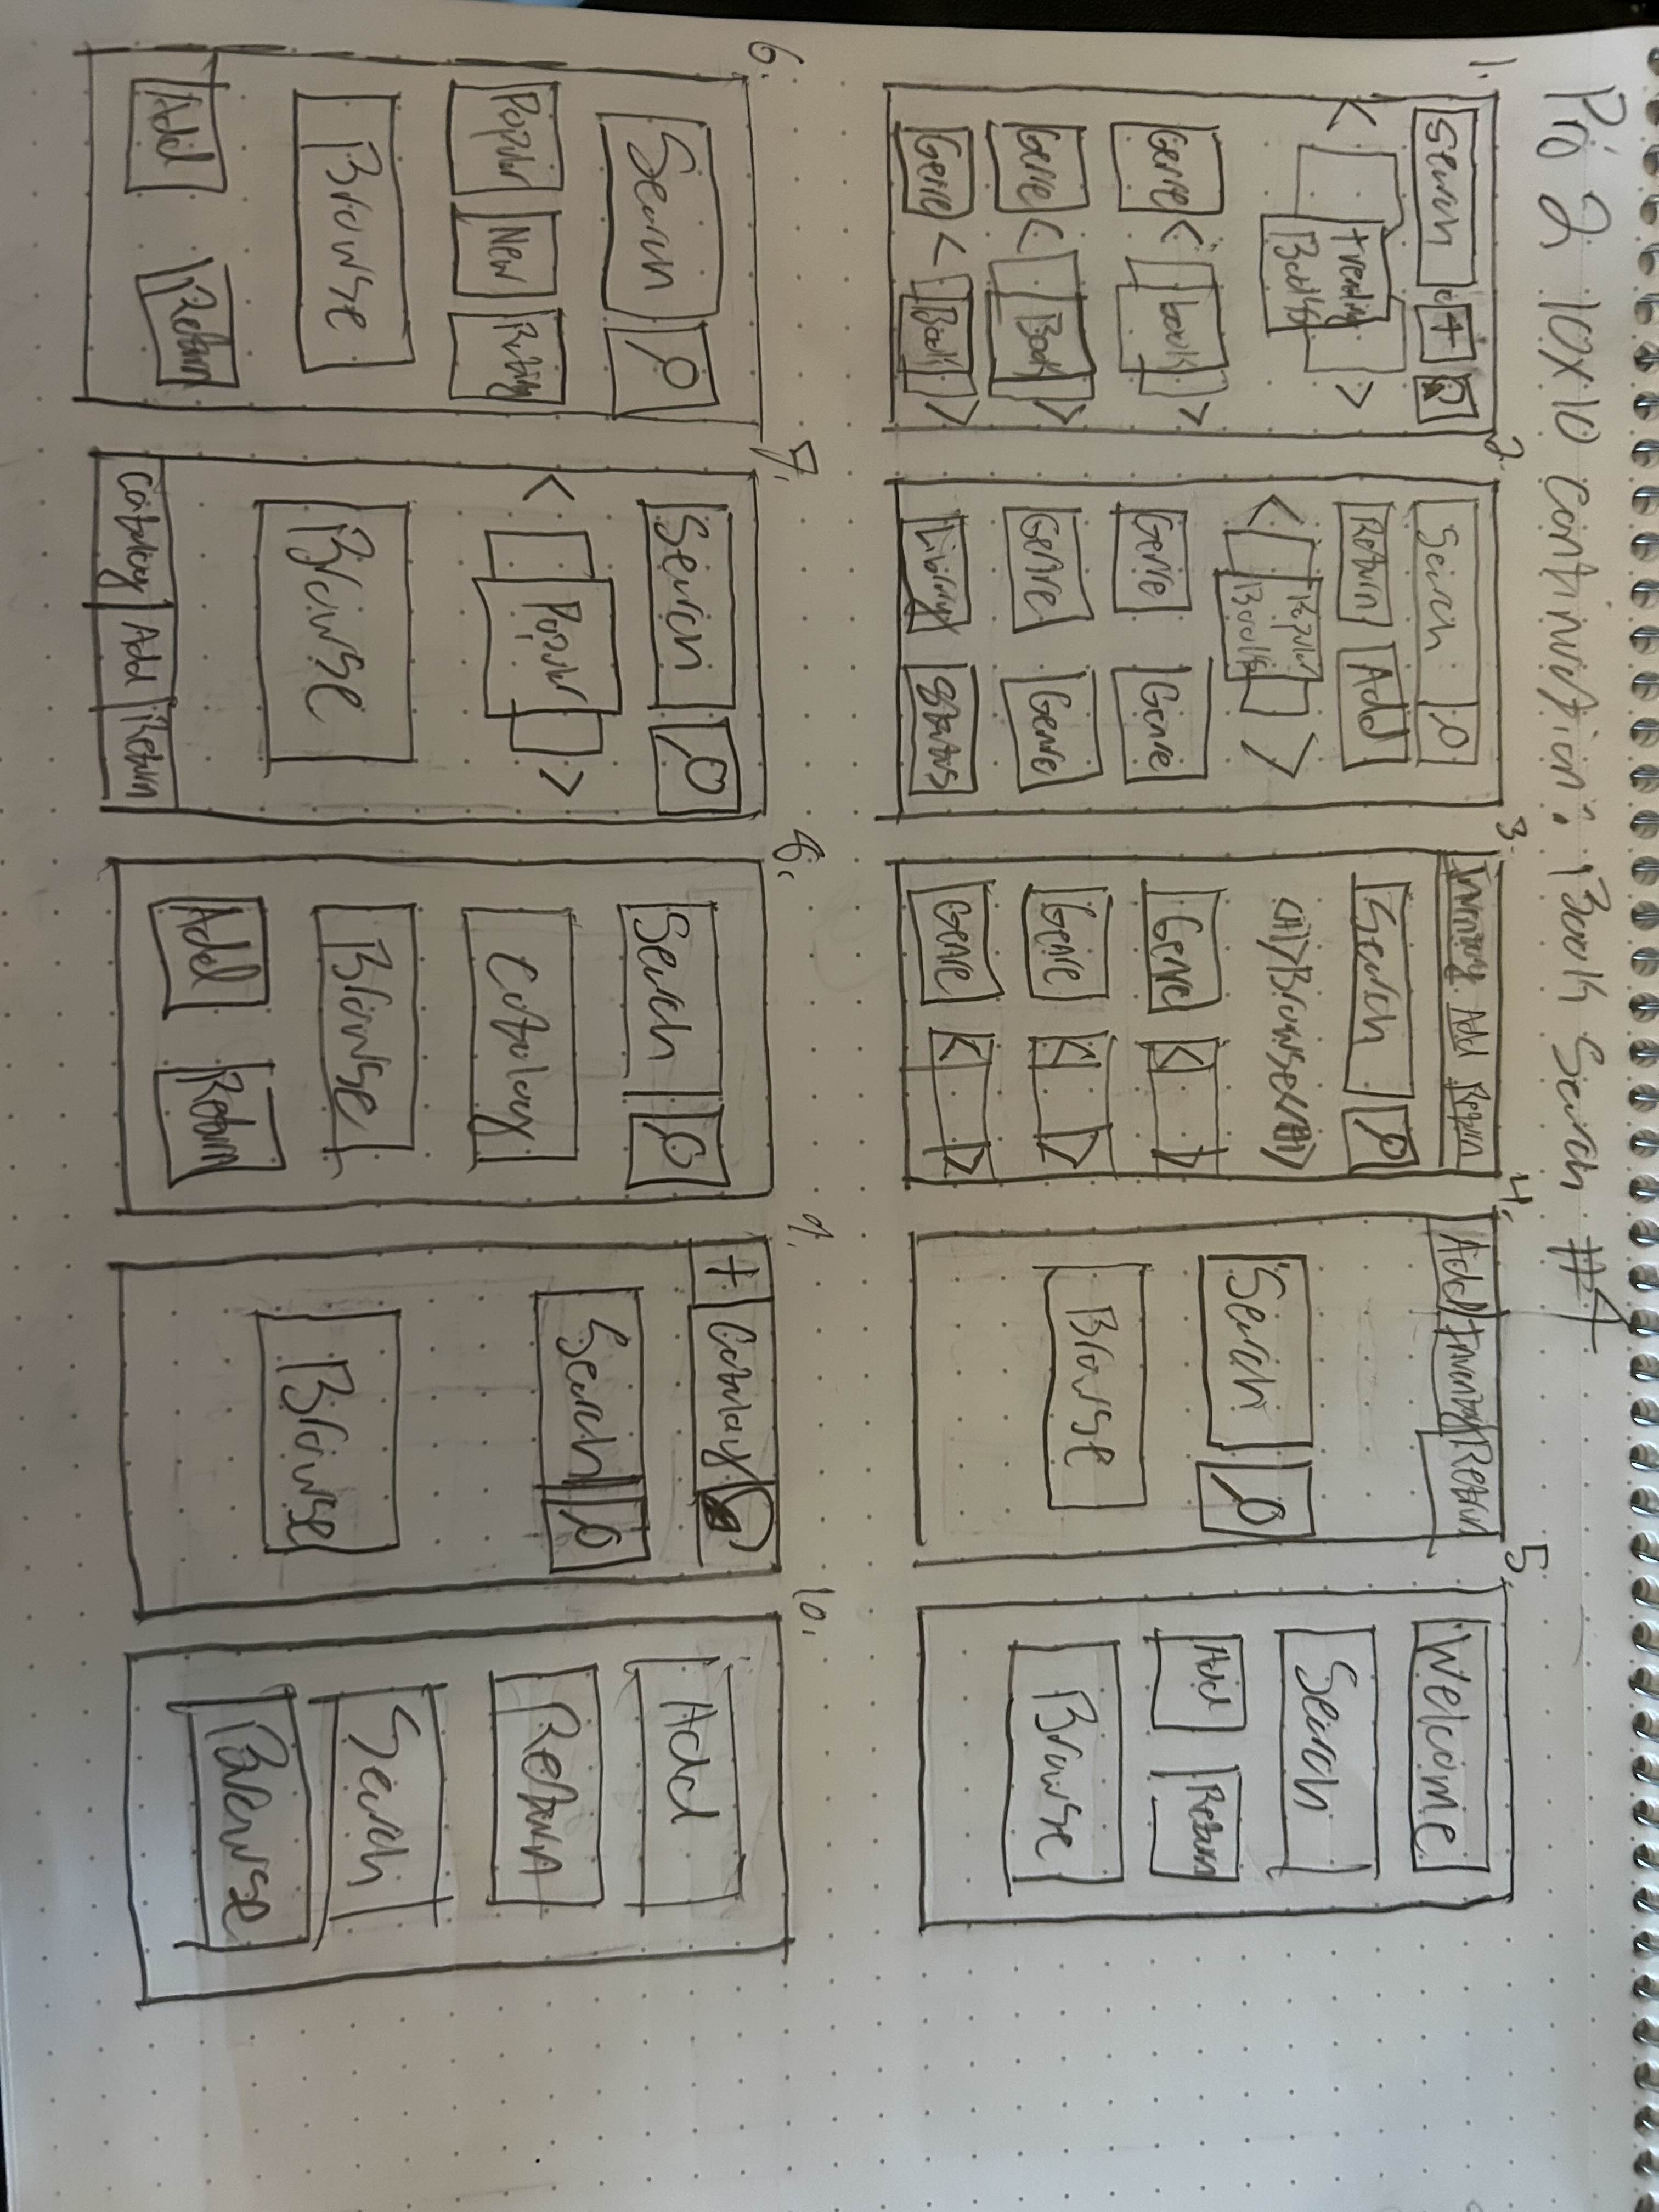 Pro 2 10x10 Continuation: Book Search #4
1.
Search + 
< trending Books >
Genre < book >
Genre < Book >
Genre < Book >
2.
Search
Return Add
< Popular Books >
Genre Genre
Genre Genre
Library Status
3.
Inventory Add Return
Search
<H1>Browse</H1>
Genre < >
Genre < >
Genre < >
4.
Add Inventory Return
Search
Browse
5.
Welcome
Search
Add Return
Browse
6.
Search
Popular New Rating
Browse
Add Return
7.
Search
< Popular >
Browse
Catalog Add Return
8.
Search
Catalog
Browse
Add Return
9.
+ Catalog
Search
Browse
10.
Add
Return
Search
Browse